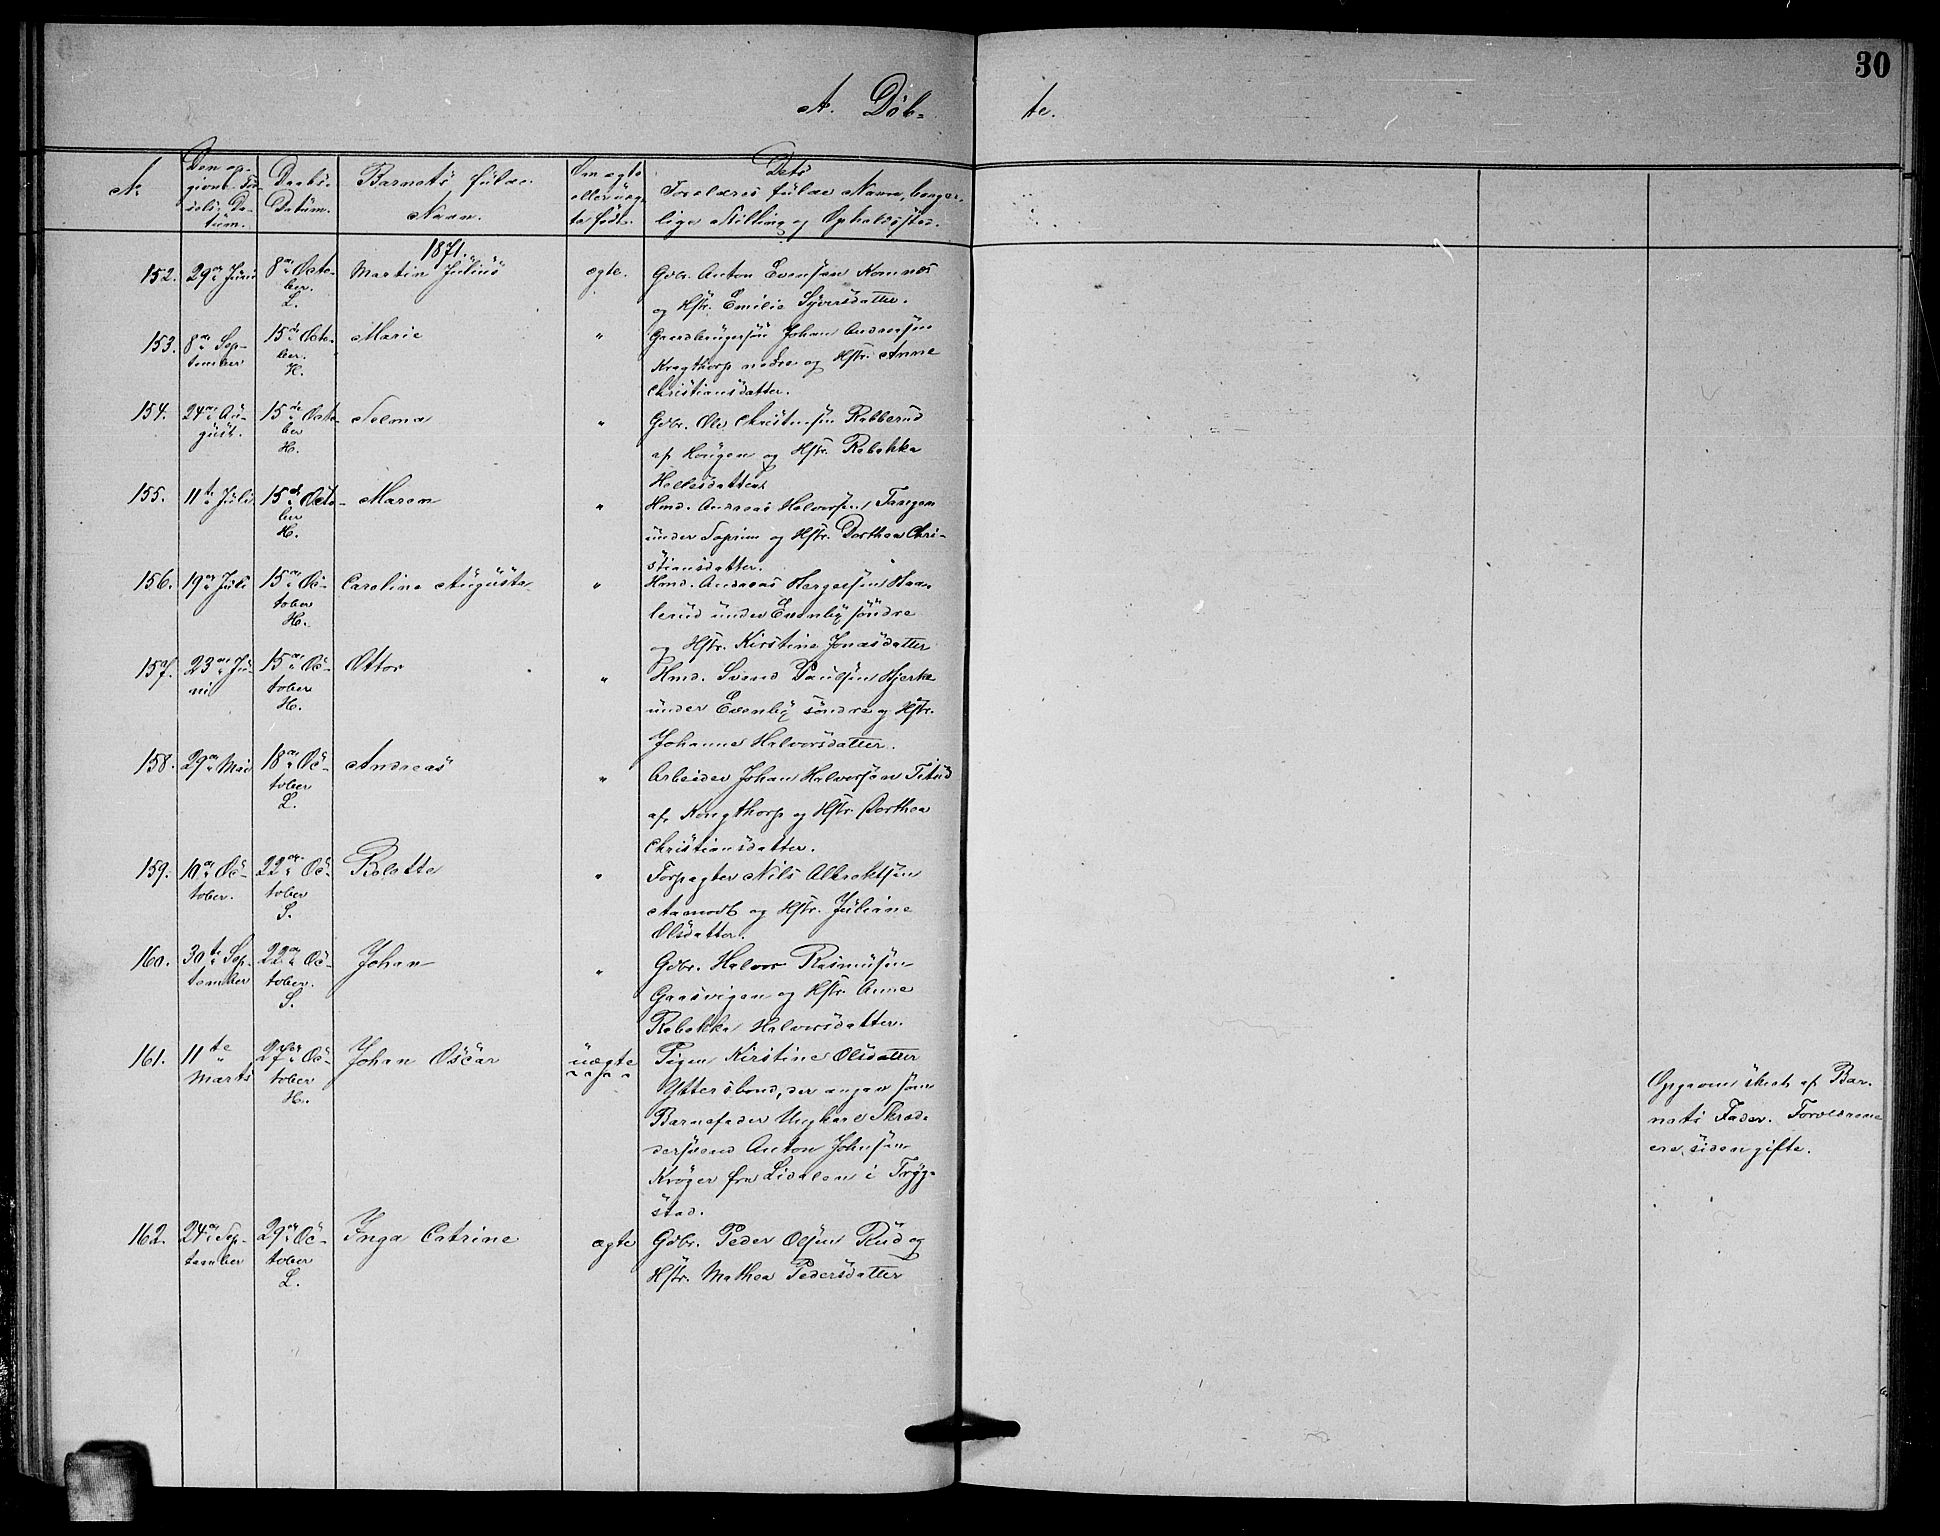 30
A. Döb-
te.
No
Den op-
givne Fö-
sels Da-
tüm.
Daabs-
Datüm.
Barnets fülde
Navn.
Om ægte
eller üæg-
te födt.
Dets
Forældres fülde Navn, borger-
lige Stilling og Opholdssted.
1871.
152. 29de Juni 8de Octo-
ber.
L.
Martin Juliüs
ægte.
Gdbr. Anton Evensen Komnæs
og Hstr. Emilie Syversdatter.
153. 8de Sep-
tember
15de Octo-
ber.
H.
Marie
"
Gaardbrüger Johan Andersen
Kragthorp nedre og Hstr. Anne
Christiansdatter.
154. 24de Aü-
güst.
15de Octo-
ber
H.
Selma
"
Gdbr. Ole Christensen Rabberud
af Hougen og Hstr. Rebekka
155. 11te Jüli 15de Octo-
ber
H.
Maren
"
Hmd. Andreas Halvorsen Tangen
ünder og Hstr. Dorthea Chri-
stiansdatter.
156. 19de Jüli 15de Oc-
tober
H.
Caroline Aügüsta
"
Hmd. Andreas
lerüd ünder Evenby söndre
og Hstr. Kirstine Jonasdatter
157. 23de Jü-
ni
15de Oc-
tober
H.
Ottor
"
Hmd. Svend Paülsen
ünder Evenby söndre og Hstr.
Johanne Halvorsdatter.
158. 29de Mai 18de Oc-
tober
L.
Andreas
"
Arbeider Johan Halvorsen
af Kragthorp og Hstr. Dorthea
Christiansdatter.
159. 10de Oc-
tober.
22de Oc-
tober
S.
Rolette
"
Forpagter Nils Albrektsen
Aamodt og Hstr. Jüliane
Olsdatter.
160. 30te Sep-
tember
22de Oc-
tober.
S.
Johan
"
Gdbr. Halvor Rasmüsen
Gaasvigen og Hstr. Anne
Rebekka Halvorsdatter.
161. 11te
Marts
27de Oc-
tober
H.
Johan Oscar
üægte
Pigen Kirstine Olsdatter
Yttersbond, der angav som
Barnefader Ungkarl Skræd-
dersvend Anton Johnsen
Kröger fra Lidalen i Tryg-
stad.
Opgaven skeet af Bar-
nets Fader. Forældrene
ere siden gifte.
162. 24de Sep-
tember
29de Oc-
tober
L.
Inga Catrine
ægte
Gdbr. Peder Olsen Rüd og
Hstr. Mathea Pedersdatter